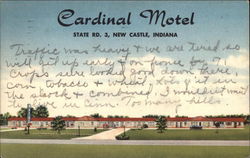 Cardinal Motel
STATE RD. 3, NEW CASTLE, INDIANA
Traffic was heavy & we are tired so
will get up early & on for 71
Crops were good down there,
corn, tobacco & wheat, lots of it in
the shock & combined. I wouldn't want
to live in Cinn. Too many hills